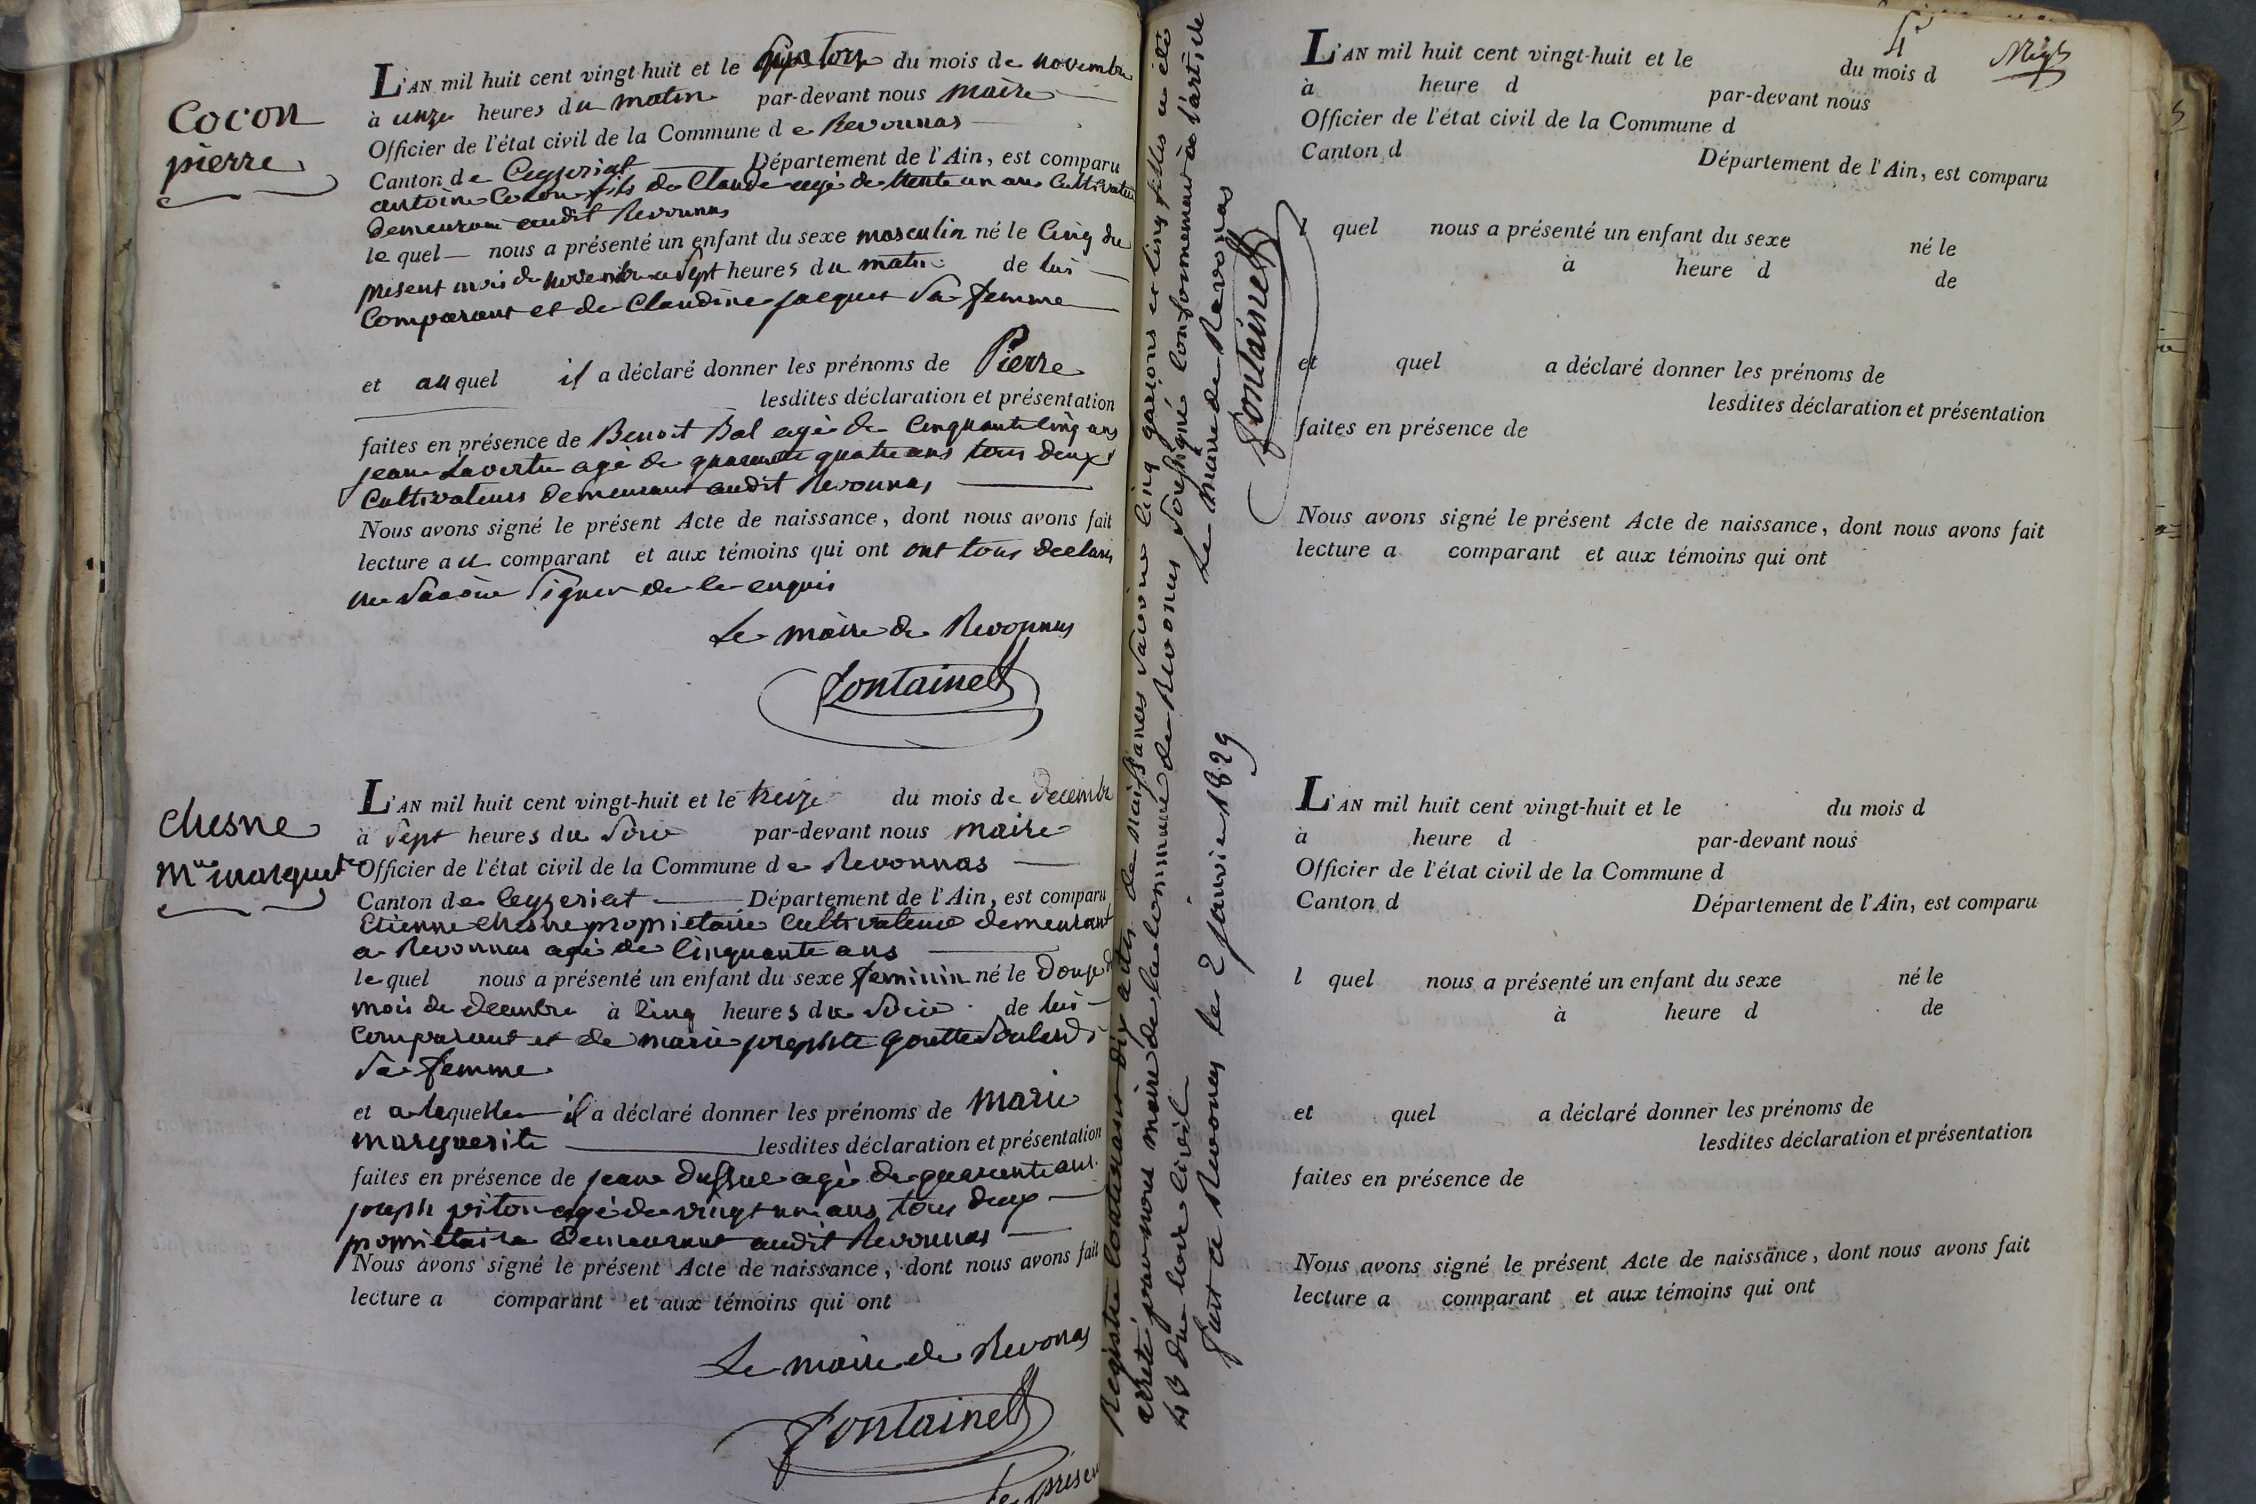 Cocon
pierre
L'AN mil huit cent vingt-huit et le quatorze du mois de novembre
à onze heures du matin par-devant nous maire
Officier de l'état civil de la Commune de Revonnas
Canton de Ceyzeriat Département de l'Ain, est comparu
antoine Cocon fils de Claude agé de trente un ans Cultivateur
demeurant audit Revonnas
le quel nous a présenté un enfant du sexe masculin né le Cinq du
present mois de novembre a Sept heures du matin de lui
Comparant et de Claudine jacquet Sa femme
et auquel il a déclaré donner les prénoms de Pierre
lesdites déclaration et présentation
faites en présence de Benoit Bal agé de Cinquante Cinq ans
jean Lavertu agé de quarante quatre ans tous deux
Cultivateurs demeurant audit Revonnas
Nous avons signé le présent Acte de naissance, dont nous avons fait
lecture au comparant et aux témoins qui ont ont tous declaré
ne Savoir Signer de ce enquis
Le maire de Revonnas
Fontainet
chesne
Mie marguerite
L'AN mil huit cent vingt-huit et le treize du mois de decembre
à Sept heures du Soir par-devant nous maire
Officier de l'état civil de la Commune de Revonnas
Canton de Ceyzeriat Département de l'Ain, est comparu
Etienne chesne propriétaire Cultivateur demeurant
a Revonnas agé de Cinquante ans
le quel nous a présenté un enfant du sexe feminin né le Douze d
mois de decembre à Cinq heures du Soir de lui
Comparant et de marie josephte goutte
Sa femme
et a laquelle il a déclaré donner les prénoms de marie
marguerite lesdites déclaration et présentation
faites en présence de jean agé de quarente ans
joseph piton agé de vingt un ans tous deux
proprietaire demeurant audit Revonnas
Nous avons signé le présent Acte de naissance, dont nous avons fait
lecture a comparant et aux témoins qui ont
Le maire de Revonas
Fontainet
Registre Contenant dix actes de naissances Savoir Cinq garçons et Cinq filles a été
arreté par nous maire de la commune de Revonnas Soussigné Conformement à l'article
43 du Code Civil
fait a Revonas le 2 janvier 1829
Le maire de Revonas
Fontainet
L'AN mil huit cent vingt-huit et le du mois d
à heure d par-devant nous
Officier de l'état civil de la Commune d
Canton d Département de l'Ain, est comparu
l quel nous a présenté un enfant du sexe né le
à heure d de
et quel a déclaré donner les prénoms de
lesdites déclaration et présentation
faites en présence de
Nous avons signé le présent Acte de naissance, dont nous avons fait
lecture a comparant et aux témoins qui ont
L'AN mil huit cent vingt-huit et le du mois d
à heure d par-devant nous
Officier de l'état civil de la Commune d
Canton d Département de l'Ain, est comparu
l quel nous a présenté un enfant du sexe né le
à heure d de
et quel a déclaré donner les prénoms de
lesdites déclaration et présentation
faites en présence de
Nous avons signé le présent Acte de naissance, dont nous avons fait
lecture a comparant et aux témoins qui ont